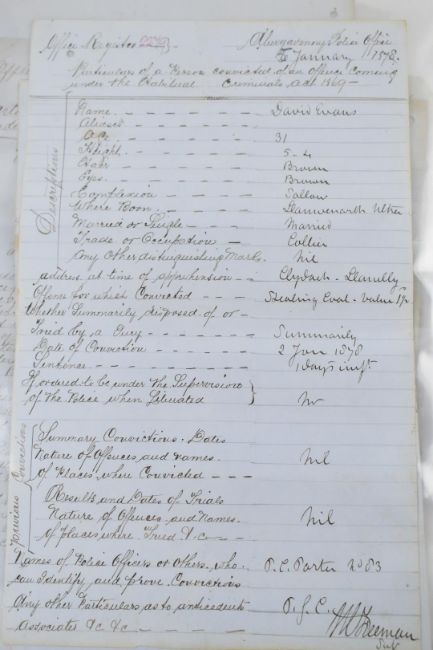 Office Register
Abergavenny Police Office
January 1878.
Particulars of a Person convicted of an offence Coming
under the Habitual Criminals Act 1869 —
Descriptions
Name. David Evans
Aliases
Age 31
Height 5-4
Hair Brown
Eyes. Brown
Complexion Sallow
Where Born. Llanwenarth Ultra
Married or Single Married
Trade or Occupation Collier
Any Other distinguishing Marks. Nil
address at time of apprehension Clydach. Llanelly
Offence for which Convicted Stealing Coal. Value
Whether Summarily disposed of or
Tried by a Jury Summarily
Date of Conviction 2 Jany 1878
Sentence 1 Days
If ordered to be under the Supervision
of the Police when Liberated No
Previous Convictions
Summary Convictions. Dates
Nature of Offences and names. Nil
of Places where Convicted
Results and Dates of Trials
Nature of Offences and Names. Nil
of places where Tried &c
Names of Police Officers or Others, who P.C. Porter No 83
can Identify and prove Convictions
Any other Particulars as to antecedents
Associates &c &c
Freeman
Supt